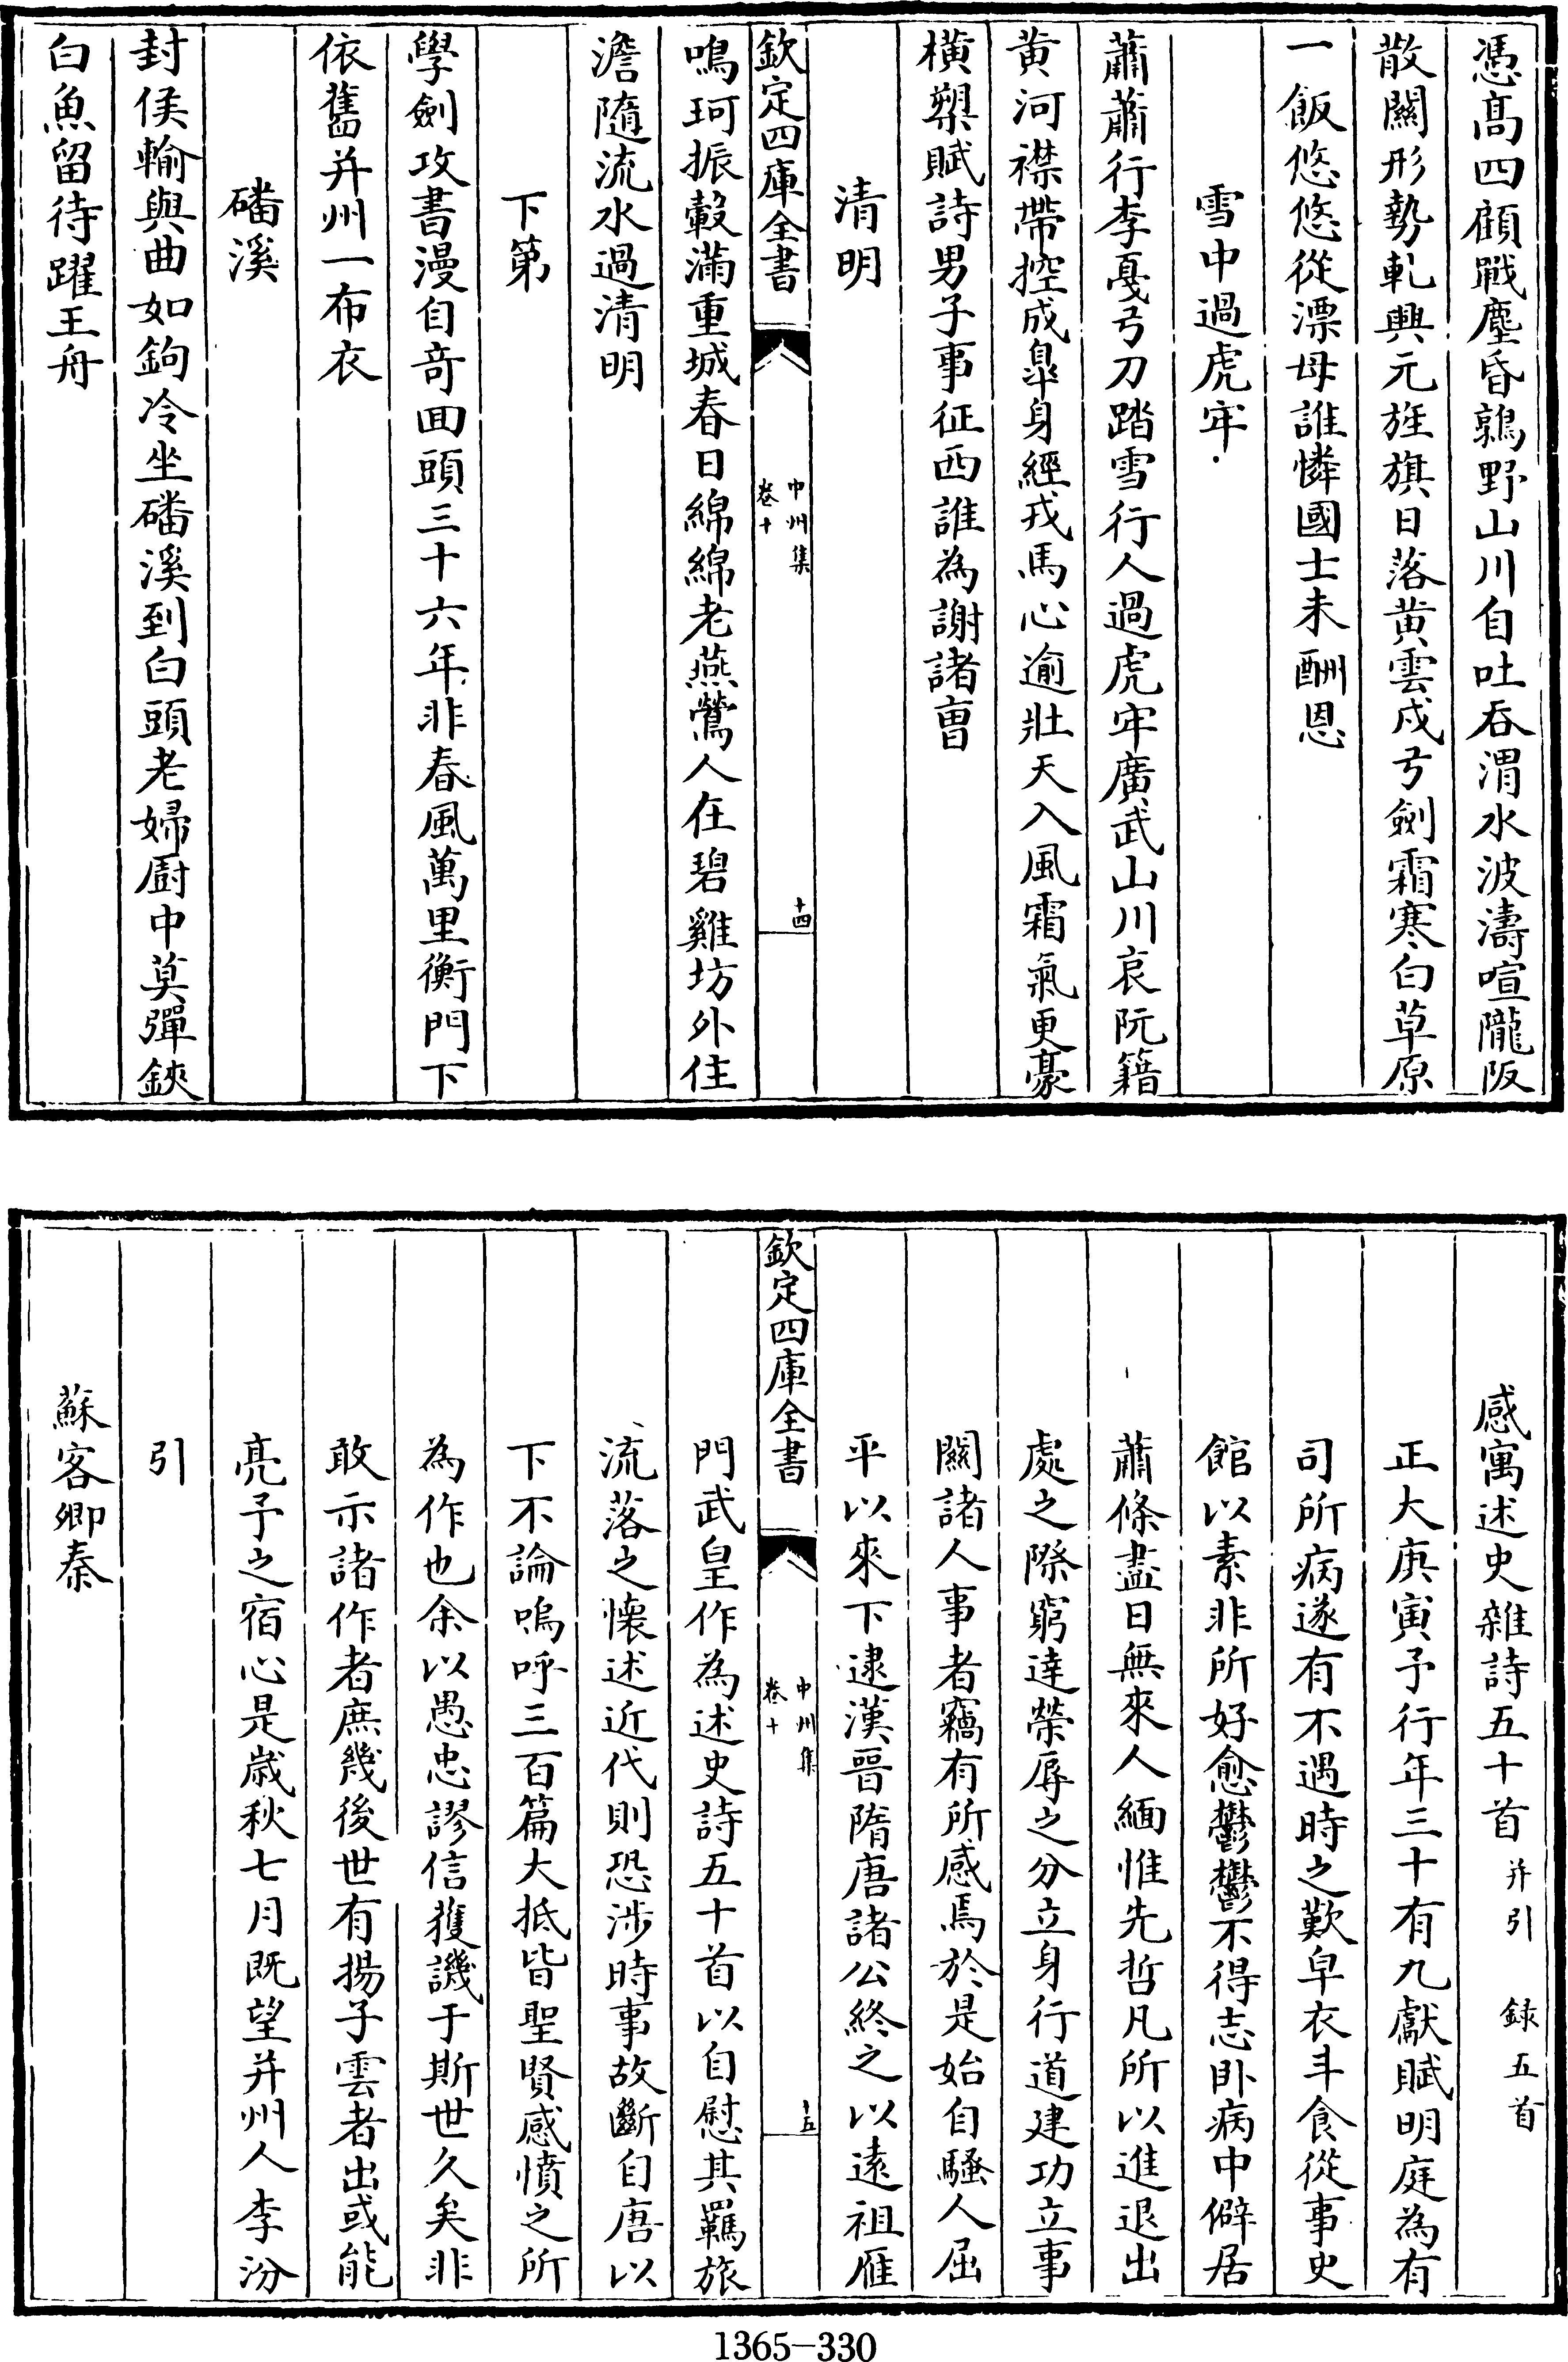 憑髙四顧戰塵昏鶉野山川自吐吞渭水波濤喧隴阪
散關形勢軋興元旌旗日落黄雲戍弓劍霜寒白草原
一飯悠悠從漂母誰憐國士未酬恩
雪中過虎牢
蕭蕭行李戛弓刀踏雪行人過虎牢廣武山川哀阮籍
黄河襟帶控成臯身經戎馬心逾壯天入風霜氣更豪
横槊賦詩男子事征西誰為謝諸曹
清明
欽定四庫全書
中州集
卷十
十四
鳴珂振轂滿重城春日綿綿老燕鶯人在碧雞坊外住
澹隨流水過清明
下第
學劍攻書漫自竒囬頭三十六年非春風萬里衡門下
依舊并州一布衣
磻溪
封侯輸與曲如鉤冷坐磻溪到白頭老婦厨中莫彈鋏
白魚留待躍王舟
感寓述史雜詩五十首并引 録五首
正大庚寅予行年三十有九獻賦明庭為有
司所病遂有不遇時之歎皁衣斗食從事史
館以素非所好愈鬱鬱不得志卧病中僻居
蕭條盡日無來人緬惟先哲凡所以進退出
處之際窮達榮辱之分立身行道建功立事
關諸人事者竊有所感焉於是始自騷人屈
平以來下逮漢晉隋唐諸公終之以遠祖雁
欽定四庫全書
中州集
卷十
十五
門武皇作為述史詩五十首以自慰其羈旅
流落之懷述近代則恐涉時事故斷自唐以
下不論嗚呼三百篇大抵皆聖賢感憤之所
為作也余以愚忠謬信獲譏于斯世久矣非
敢示諸作者庶幾後世有揚子雲者出或能
亮予之宿心是歳秋七月既望并州人李汾
引
蘇客卿秦
1365-330